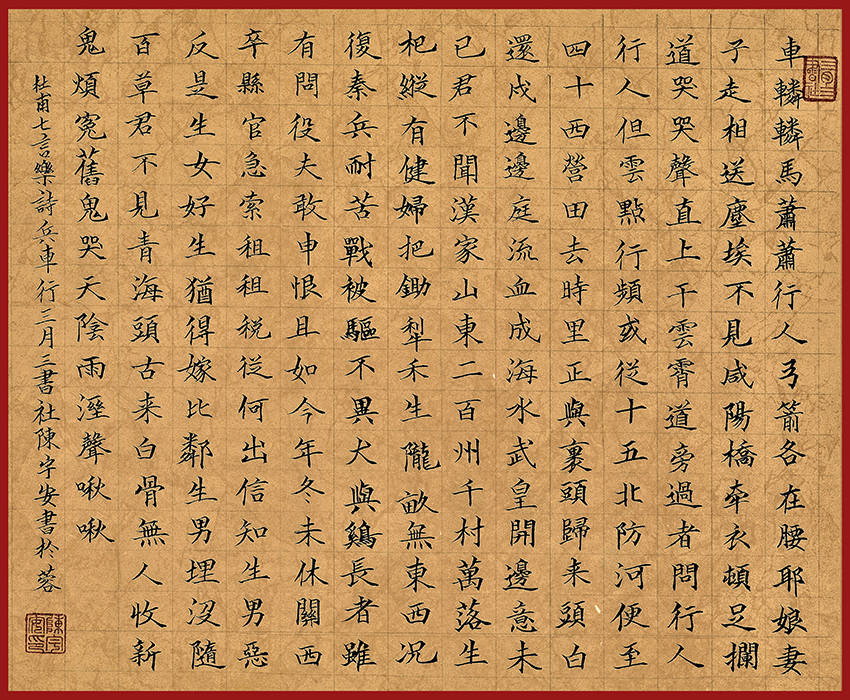 三月三書社
車轔轔馬蕭蕭行人弓箭各在腰耶娘妻
子走相送塵埃不見咸陽橋牽衣頓足攔
道哭哭聲直上干雲霄道旁過者問行人
行人但雲點行頻或從十五北防河便至
四十西營田去時里正與裹頭歸来頭白
還戍邊邊庭流血成海水武皇開邊意未
已君不聞漢家山東二百州千村萬落生
杞縱有健婦把鋤犁禾生隴畝無東西况
復秦兵耐苦戰被驅不異犬與鷄長者雖
有問役夫敢申恨且如今年冬未休關西
卒縣官急索租租税從何出信知生男惡
反是生女好生猶得嫁比鄰生男埋沒隨
百草君不見青海頭古来白骨無人收新
鬼煩冤舊鬼哭天陰雨溼聲啾啾
杜甫七言樂詩兵車行三月三書社陳宇安書於蓉
陳宇安印